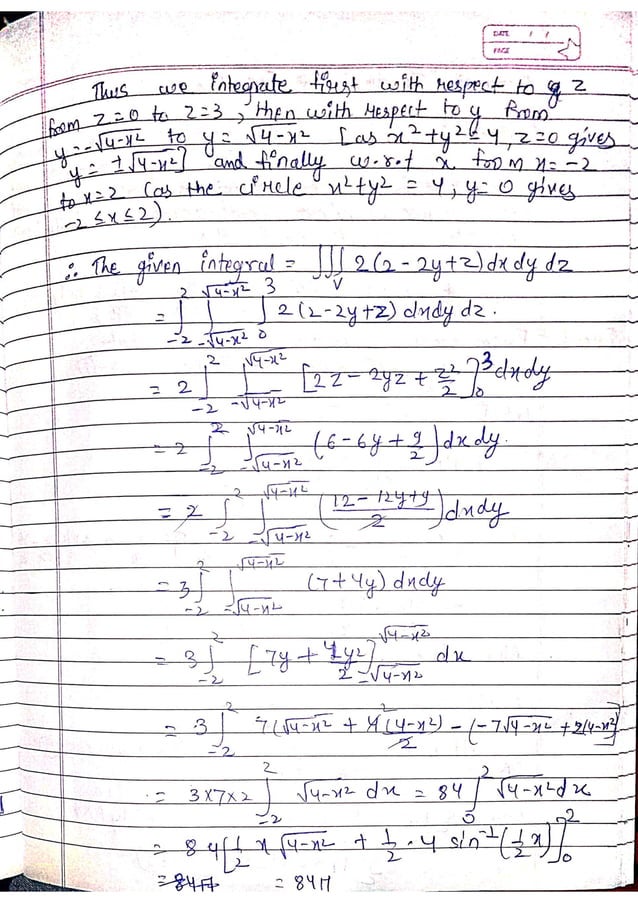 DATE / /
PAGE
Thus we integrate first with respect to z
from z=0 to z=3, then with respect to y from
y=-√4-x² to y= √4-x² [as x²+y²=4, z=0 gives
y= ±√4-x²] and finally w.r.t x from x=-2
to x=2 (as the circle x²+y² = 4, y=0 gives
-2≤x≤2).
∴ The given integral = ∭_V 2(2-2y+z)dx dy dz
= ∫_{-2}^{2} ∫_{-√4-x²}^{√4-x²} ∫_0^3 2(2-2y+z) dxdy dz.
= 2 ∫_{-2}^{2} ∫_{-√4-x²}^{√4-x²} [2z-2yz+z²/2]_0^3 dxdy
= 2 ∫_{-2}^{2} ∫_{-√4-x²}^{√4-x²} (6-6y+9/2) dxdy.
= 2 ∫_{-2}^{2} ∫_{-√4-x²}^{√4-x²} ((12-12y+y)/2) dxdy
= 3 ∫_{-2}^{2} ∫_{-√4-x²}^{√4-x²} (7+4y) dxdy
= 3 ∫_{-2}^{2} [7y + 4y²/2]_{-√4-x²}^{√4-x²} dx
= 3 ∫_{-2}^{2} 7(√4-x² + 4(4-x²)/2 - (-7√4-x² + 2(4-x²)]
= 3x7x2 ∫_{-2}^{2} √4-x² dx = 84 ∫_0^2 √4-x² dx
= 84[1/2 x √4-x² + 1/2 · 4 sin⁻¹(1/2 x)]_0^2
=84π = 84π